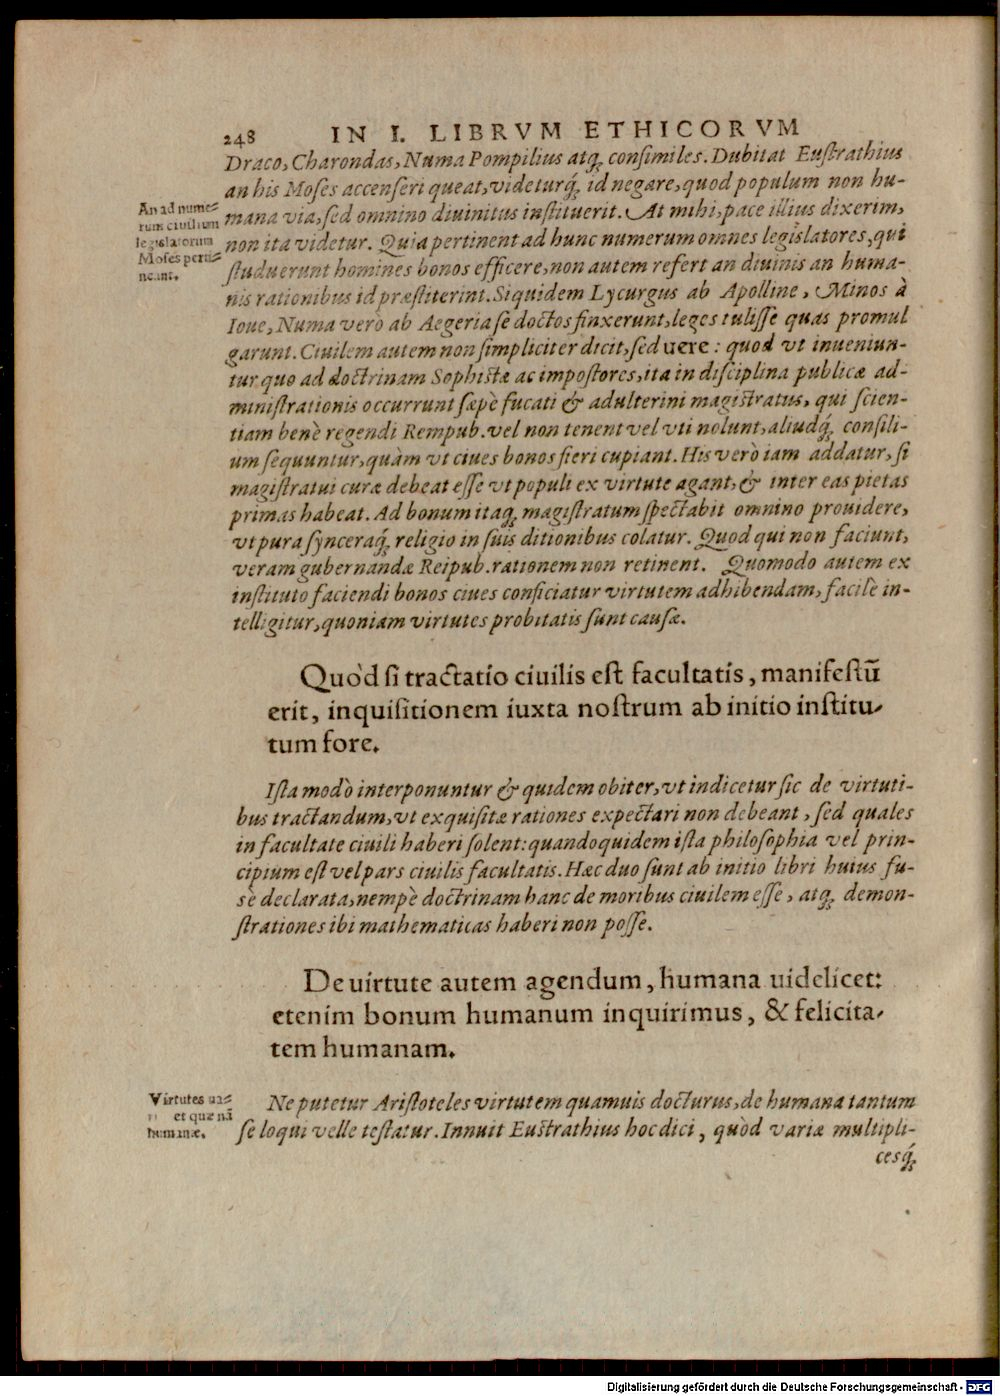 248 IN I. LIBRVM ETHICORVM
Draco, Charondas, Numa Pompilius atq́; consimiles. Dubitat Eustrathius
an his Moses accenseri queat, videturq́; id negare, quod populum non hu-
mana via, sed omnino diuinitus instituerit. At mihi, pace illius dixerim,
non ita videtur. Quia pertinent ad hunc numerum omnes legislatores, qui
studuerunt homines bonos efficere, non autem refert an diuinis an huma-
nis rationibus id præstiterint. Siquidem Lycurgus ab Apolline, Minos à
Ioue, Numa verò ab Aegeria se doctos finxerunt, leges tulisse quas promul
garunt. Ciuilem autem non simpliciter dicit, sed uere: quod vt inueniun-
tur quo ad doctrinam Sophistæ ac impostores, ita in disciplina publicæ ad-
ministrationis occurrunt sæpè fucati & adulterini magistratus, qui scien-
tiam benè regendi Rempub. vel non tenent vel vti nolunt, aliudq́; consili-
um sequuntur, quàm vt ciues bonos fieri cupiant. His verò iam addatur, si
magistratui curæ debeat esse vt populi ex virtute agant, & inter eas pietas
primas habeat. Ad bonum itaq; magistratum spectabit omnino prouidere,
vt pura synceraq́; religio in suis ditionibus colatur. Quod qui non faciunt,
veram gubernandæ Reipub. rationem non retinent. Quomodo autem ex
instituto faciendi bonos ciues conficiatur virtutem adhibendam, facilè in-
telligitur, quoniam virtutes probitatis sunt causæ.
An ad nume-
rum ciuilium
legislatorum
Moses perti-
neant.
Quòd si tractatio ciuilis est facultatis, manifestū
erit, inquisitionem iuxta nostrum ab initio institu-
tum fore.
Ista modò interponuntur & quidem obiter, vt indicetur sic de virtuti-
bus tractandum, vt exquisitæ rationes expectari non debeant, sed quales
in facultate ciuili haberi solent: quandoquidem ista philosophia vel prin-
cipium est vel pars ciuilis facultatis. Hæc duo sunt ab initio libri huius fu-
sè declarata, nempè doctrinam hanc de moribus ciuilem esse, atq; demon-
strationes ibi mathematicas haberi non posse.
De uirtute autem agendum, humana uidelicet:
etenim bonum humanum inquirimus, & felicita-
tem humanam.
Virtutes ua-
et quæ nā
humanæ.
Ne putetur Aristoteles virtutem quamuis docturus, de humana tantum
se loqui velle testatur. Innuit Eustrathius hoc dici, quòd variæ multipli-
cesq́;
Digitalisierung gefördert durch die Deutsche Forschungsgemeinschaft - DFG